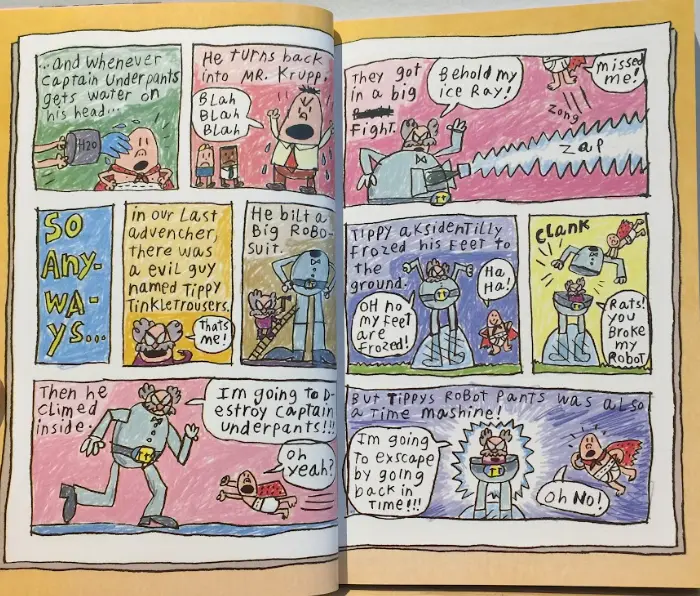 ...and whenever
Captain Underpants
gets water on
his head...
H2O
He turns back
into MR. Krupp.
BLAH
BLAH
BLAH
SO
Any-
WA-
ys...
in our Last
advencher,
there was
a evil guy
named Tippy
TinkleTrousers.
Thats
me!
He bilt a
Big ROBO-
SUIT.
Then he
climed
inside.
Im going to D-
estroy Captain
underpants!!!
TT
Oh
yeah?
They got
in a big
Fight.
Behold my
ice Ray!
missed
me!
Zong
ZAP
TT
Tippy aksidentilly
Frozed his Feet to
the
ground.
OH no
my Feet
are
Frozed!
Ha
Ha!
CLANK
Rats!
you
Broke
my
Robot
BUT TIPPYS ROBOT PANTS WAS ALSO
a Time mashine!
Im going
To Exscape
by going
back in
Time!!!
TT
Oh No!